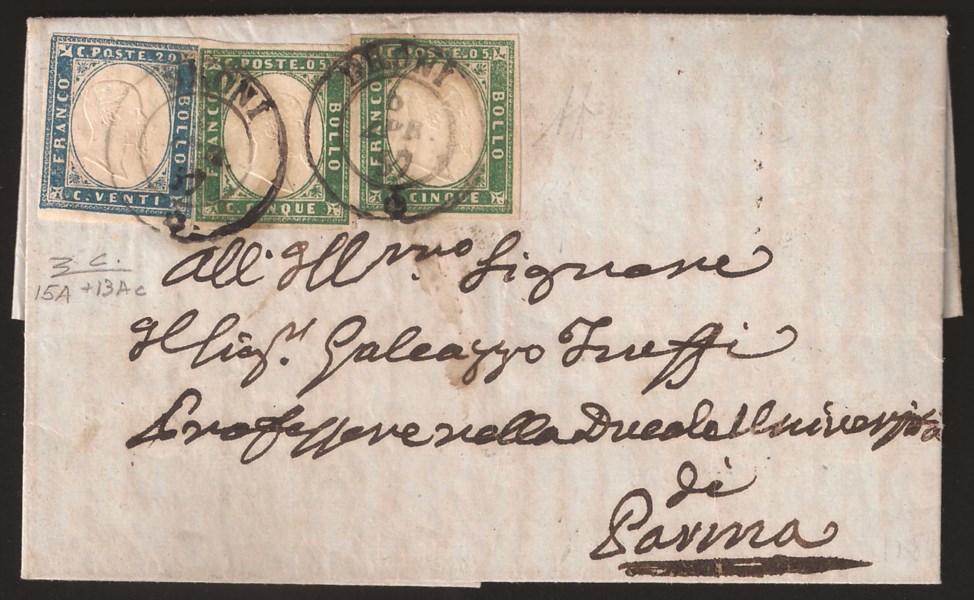 C. POSTE. 20
FRANCO
BOLLO
C. VENTI
C. POSTE. 05
FRANCO
BOLLO
C. CINQUE
C. POSTE. 05
FRANCO
BOLLO
C. CINQUE
BRONI
BRONI
6
APR.
57
3 C.
15A + 13Ac
All' Ill.mo Signore
Il Sig.r Galeazzo Truffi
Professore nella Ducale Università
di
Parma